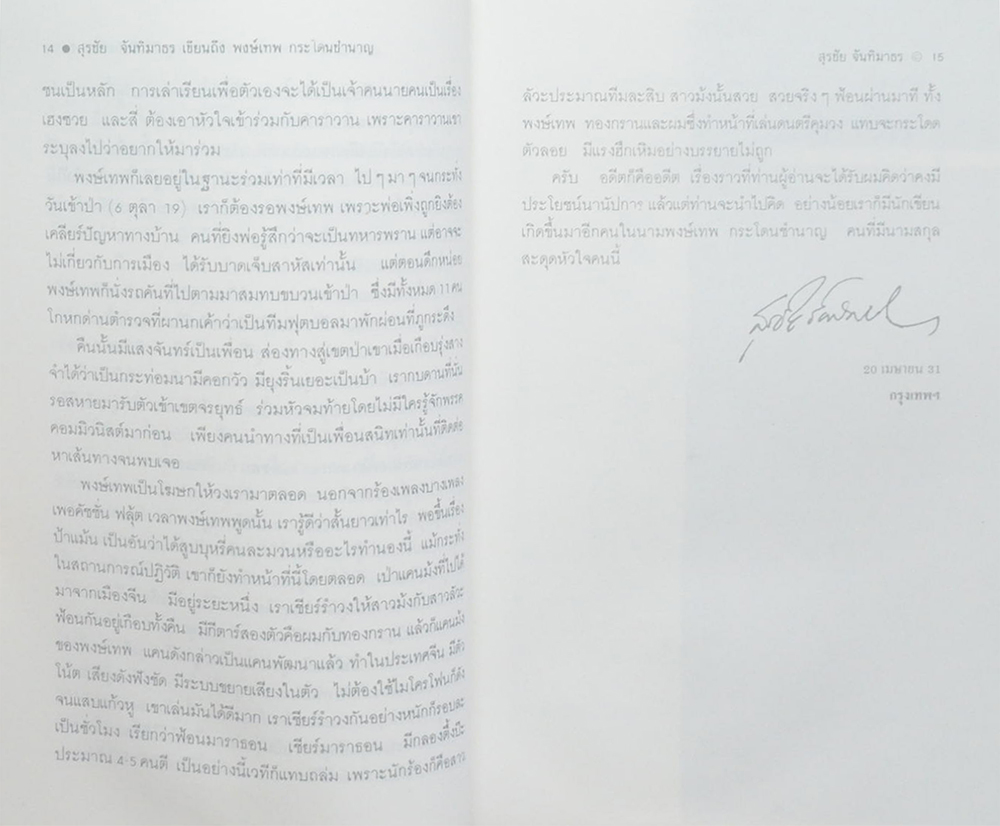 14 ● สุรชัย จันทิมาธร เขียนถึง พงษ์เทพ กระโดนชำนาญ
ชนเป็นหลัก การเล่าเรียนเพื่อตัวเองจะได้เป็นเจ้าคนนายคนเป็นเรื่อง
เฮงซวย และสี่ ต้องเอาหัวใจเข้าร่วมกับคาราวาน เพราะคาราวานเรา
ระบุลงไปว่าอยากให้มาร่วม
พงษ์เทพก็เลยอยู่ในฐานะร่วมเท่าที่มีเวลา ไปๆมาๆจนกระทั่ง
วันเข้าป่า (6 ตุลา 19) เราก็ต้องรอพงษ์เทพ เพราะพ่อเพิ่งถูกยิงต้อง
เคลียร์ปัญหาทางบ้าน คนที่ยิงพ่อรู้สึกว่าจะเป็นทหารพราน แต่อาจจะ
ไม่เกี่ยวกับการเมือง ได้รับบาดเจ็บสาหัสเท่านั้น แต่ตอนดึกหน่อย
พงษ์เทพก็นั่งรถคันที่ไปตามมาสมทบขบวนเข้าป่า ซึ่งมีทั้งหมด 11 คน
โกหกด่านตำรวจที่ผานกเค้าว่าเป็นทีมฟุตบอลมาพักผ่อนที่ภูกระดึง
คืนนั้นมีแสงจันทร์เป็นเพื่อน ส่องทางสู่เขตป่าเขาเมื่อเกือบรุ่งสาง
จำได้ว่าเป็นกระท่อมนามีคอกวัว มียุงริ้นเยอะเป็นบ้า เรากบดานที่นั่น
รอสหายมารับตัวเข้าเขตจรยุทธ์ ร่วมหัวจมท้ายโดยไม่มีใครรู้จักพรรค
คอมมิวนิสต์มาก่อน เพียงคนนำทางที่เป็นเพื่อนสนิทเท่านั้นที่ติดต่อ
หาเส้นทางจนพบเจอ
พงษ์เทพเป็นโฆษกให้วงเรามาตลอด นอกจากร้องเพลงบางเพลง
เพอคัชชั่น ฟลุ้ต เวลาพงษ์เทพพูดนั้น เรารู้ดีว่าสั้นยาวเท่าไร พอขึ้นเรื่อง
ป้าแม้น เป็นอันว่าได้สูบบุหรี่คนละมวนหรืออะไรทำนองนี้ แม้กระทั่ง
ในสถานการณ์ปฏิวัติ เขาก็ยังทำหน้าที่นี้โดยตลอด เป่าแคนม้งที่ไปได้
มาจากเมืองจีน มีอยู่ระยะหนึ่ง เราเชียร์รำวงให้สาวม้งกับสาวลัวะ
ฟ้อนกันอยู่เกือบทั้งคืน มีกีตาร์สองตัวคือผมกับทองกราน แล้วก็แคนม้ง
ของพงษ์เทพ แคนดังกล่าวเป็นแคนพัฒนาแล้ว ทำในประเทศจีน มีตัว
โน้ต เสียงดังฟังชัด มีระบบขยายเสียงในตัว ไม่ต้องใช้ไมโครโฟนก็ดัง
จนแสบแก้วหู เขาเล่นมันได้ดีมาก เราเชียร์รำวงกันอย่างหนักก็รอบละ
เป็นชั่วโมง เรียกว่าฟ้อนมาราธอน เชียร์มาราธอน มีกลองตึ้งป๊ะ
ประมาณ 4-5 คนตี เป็นอย่างนี้เวทีก็แทบถล่ม เพราะนักร้องก็คือสาว
สุรชัย จันทิมาธร ● 15
ลัวะประมาณทีมละสิบ สาวม้งนั้นสวย สวยจริงๆ ฟ้อนผ่านมาที ทั้ง
พงษ์เทพ ทองกรานและผมซึ่งทำหน้าที่เล่นดนตรีคุมวง แทบจะกระโดด
ตัวลอย มีแรงฮึกเหิมอย่างบรรยายไม่ถูก
ครับ อดีตก็คืออดีต เรื่องราวที่ท่านผู้อ่านจะได้รับผมคิดว่าคงมี
ประโยชน์นานัปการ แล้วแต่ท่านจะนำไปคิด อย่างน้อยเราก็มีนักเขียน
เกิดขึ้นมาอีกคนในนามพงษ์เทพ กระโดนชำนาญ คนที่มีนามสกุล
สะดุดหัวใจคนนี้
20 เมษายน 31
กรุงเทพฯ